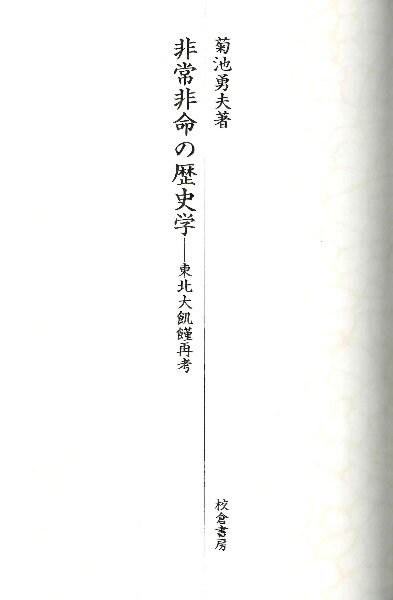 菊池勇夫著
非常非命の歴史学――東北大飢饉再考
校倉書房